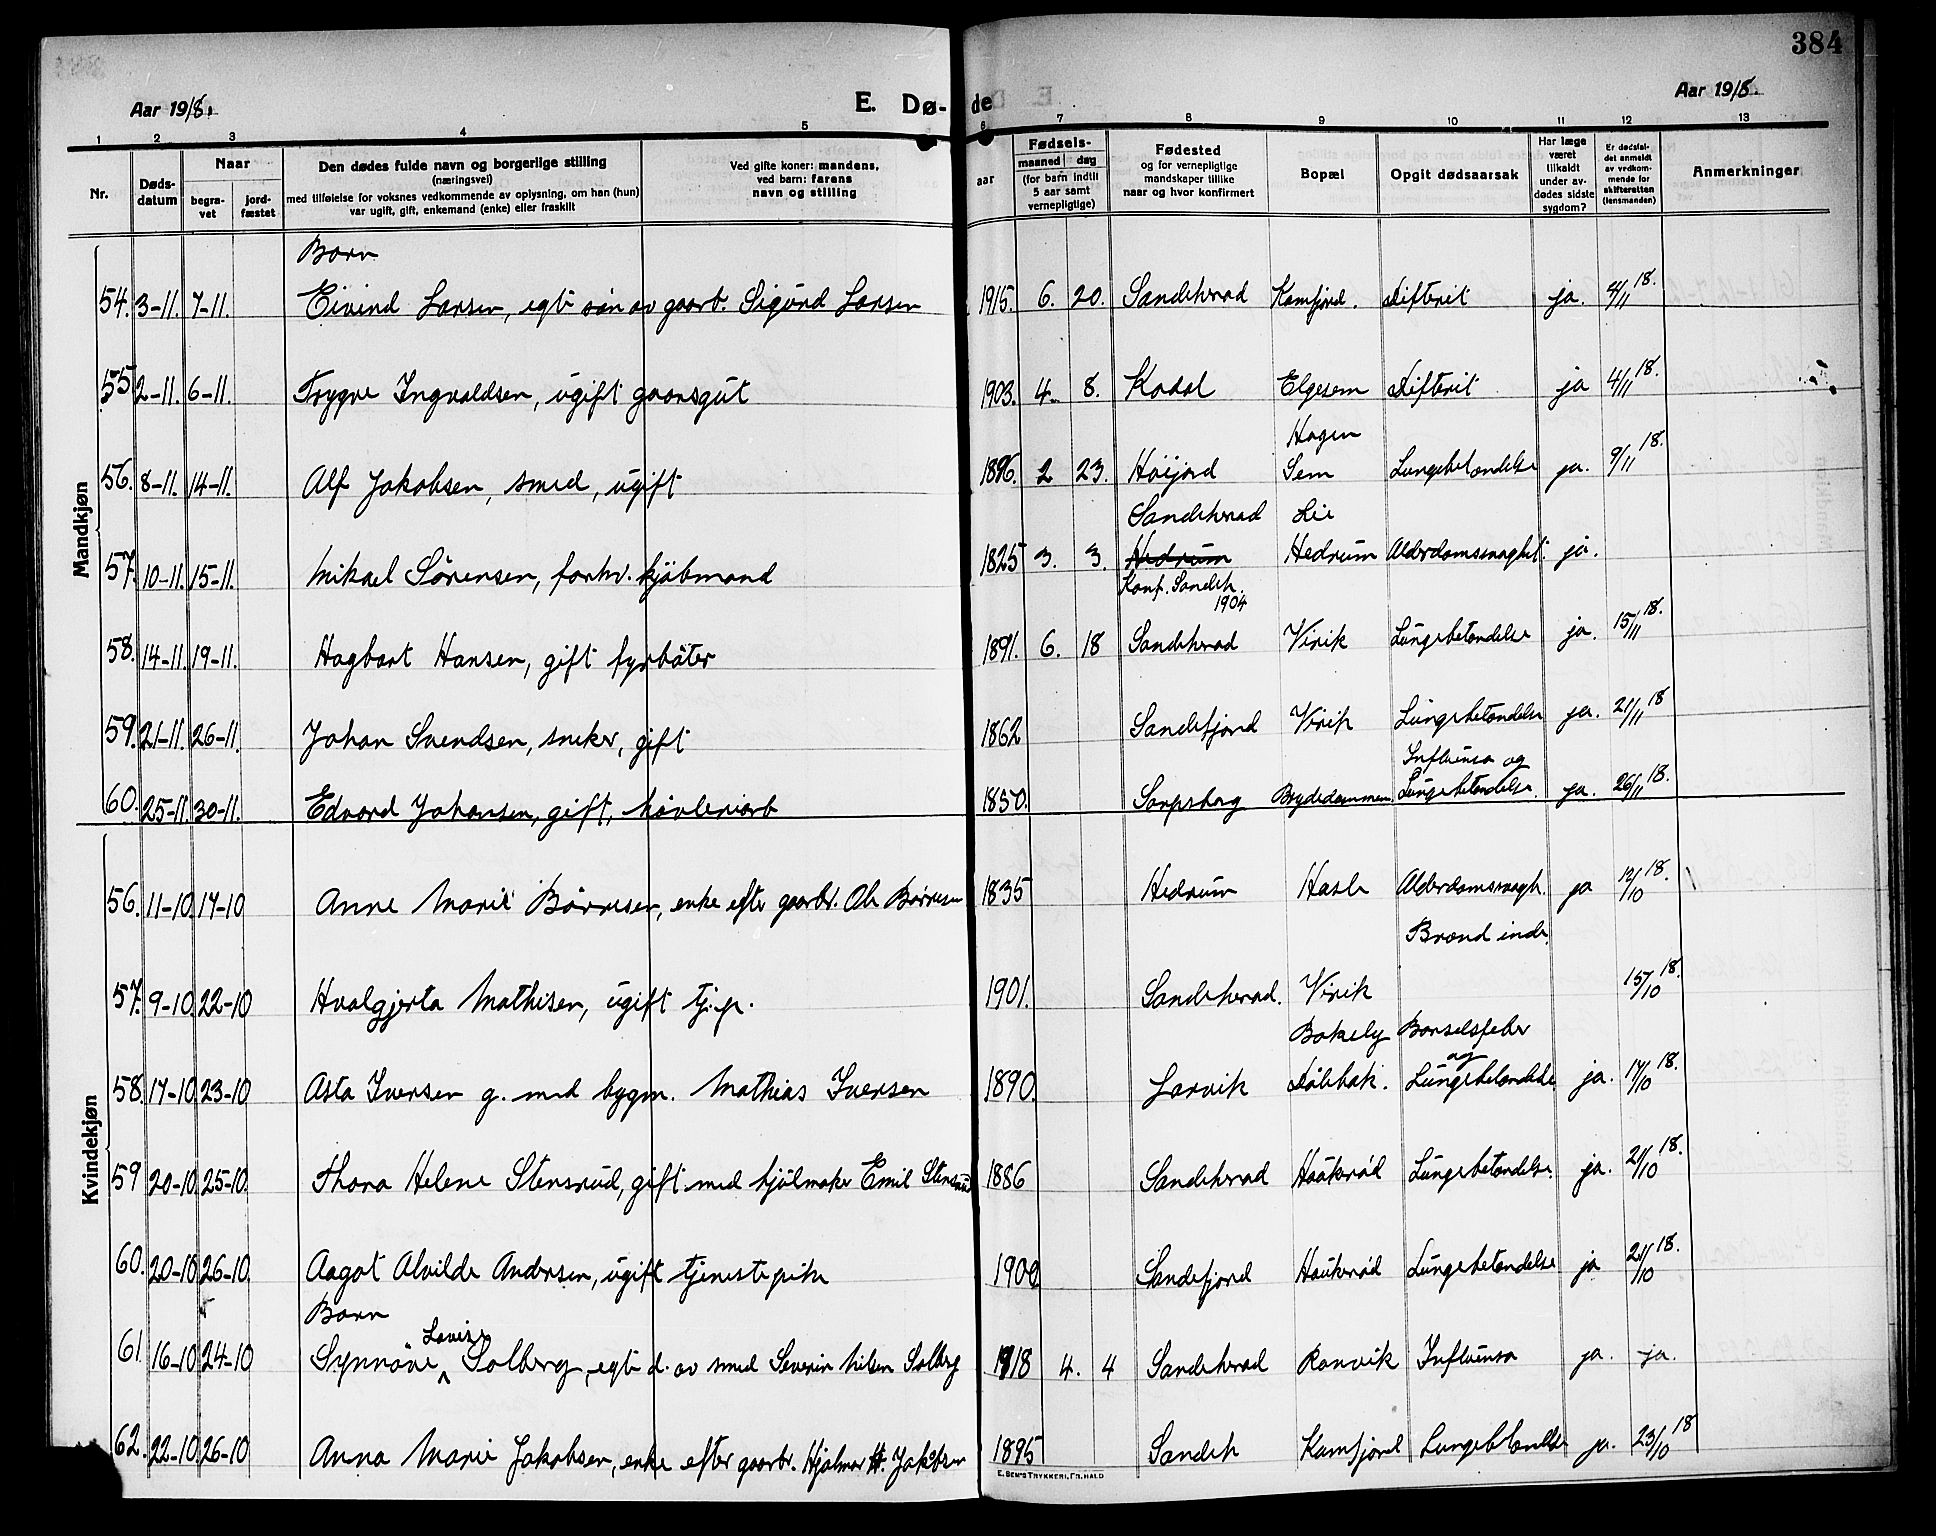 384
Aar 1918.
E. Dø-
de
Aar 1918.
1 2 3 4 5 6 7 8 9 10 11 12 13
Nr.
Døds-
datum
Naar
begra-
vet
jord-
fæstet
Den dødes fulde navn og borgerlige stilling
(næringsvei)
med tilføielse for voksnes vedkommende av oplysning, om han (hun)
var ugift, gift, enkemand (enke) eller fraskilt
Ved gifte koner: mandens,
ved barn: farens
navn og stilling
Fødsels-
aar
maaned dag
(for barn indtil
5 aar samt
vernepligtige)
Fødested
og for vernepligtige
mandskaper tillike
naar og hvor konfirmert
Bopæl
Opgit dødsaarsak
Har læge
været
tilkaldt
under av-
dødes sidste
sygdom?
Er dødsfal-
det anmeldt
av vedkom-
mende for
skifteretten
(lensmanden)
Anmerkninger
Mandkjøn
Barn
54. 3-11. 7-11. Eivind Larsen, egt. søn av gaarb. Sigurd Larsen 1915. 6. 20. Sandeherad Kamfjord. Difterit ja. 4/11 18.
55 2-11. 6-11. Trygve Ingvaldsen, ugift gaarsgut 1903. 4. 8. Kodal Elgesem Difterit ja 4/11 18.
Hagen
56. 8-11. 14-11. Alf Jakobsen, smed, ugift 1896. 2 23. Höijord Sem Lungebetændelse ja. 9/11 18.
Sandeherad Lie
57. 10-11. 15-11. Mikael Sörensen, forhv. kjöbmand 1825 3. 3. Hedrum Hedrum Alderdomssvaghet. ja.
Konf. Sandeh.
1904
58. 14-11. 19-11. Hagbart Hansen, gift fyrböter 1891. 6. 18 Sandeherad Virik Lungebetændelse ja. 15/11 18.
59. 21-11. 26-11. Johan Svendsen, sneker, gift 1862 Sandefjord Virik Lungebetændelse ja. 21/11 18
Influensa og
60. 25-11. 30-11. Edvard Johansen, gift, høvleriarb 1850. Sarpsborg Brydedammen. Lungebetændelse. ja. 26/11 18.
Kvindekjøn
56. 11-10 17-10 Anne Marie Börresen, enke efter gaarbr. Ole Börresen 1835 Hedrum Hasle Alderdomssvagh. ja 12/10 18.
Brand inde.
57. 9-10. 22-10 Hvalgjerta Mathisen, ugift tj.p. 1901. Sandeherad. Virik 15/10 18.
Bakely Barselsfeber
og
58. 17-10 23-10 Asta Iversen g. med bygm. Mathias Iversen 1890. Larvik Dölebak. Lungebetændelse ja. 17/10 18.
59 20-10 25-10. Thora Helene Stensrud, gift med hjulmaker Emil Stensrud 1886 Sandeherad Haukeröd Lungebetændelse. ja. 21/10 18.
60. 20-10 26-10. Aagot Alvilde Andersen, ugift tjenestepike 1900 Sandefjord Haukeröd Lungebetændelse ja 21/10 18.
Barn
Lovise
61. 16-10 24-10 Synnöve Solberg, egt. d. av smed Severin Nilsen Solberg 1918 4. 4 Sandeherad Ranvik Influensa ja. ja.
62. 22-10. 26-10 Anna Marie Jakobsen, enke efter gaarbr. Hjalmar H. Jakobsen 1895 Sandeh Kamfjord Lungebetændelse ja. 23/10 18
E. SEM'S TRYKKERI, FR.HALD